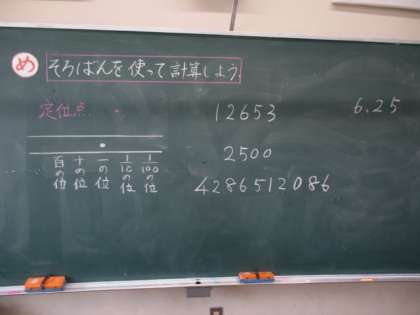 め そろばんを使って計算しよう。
定位点
12653
6.25
2500
4286512086
百の位
十の位
一の位
1/10の位
1/100の位